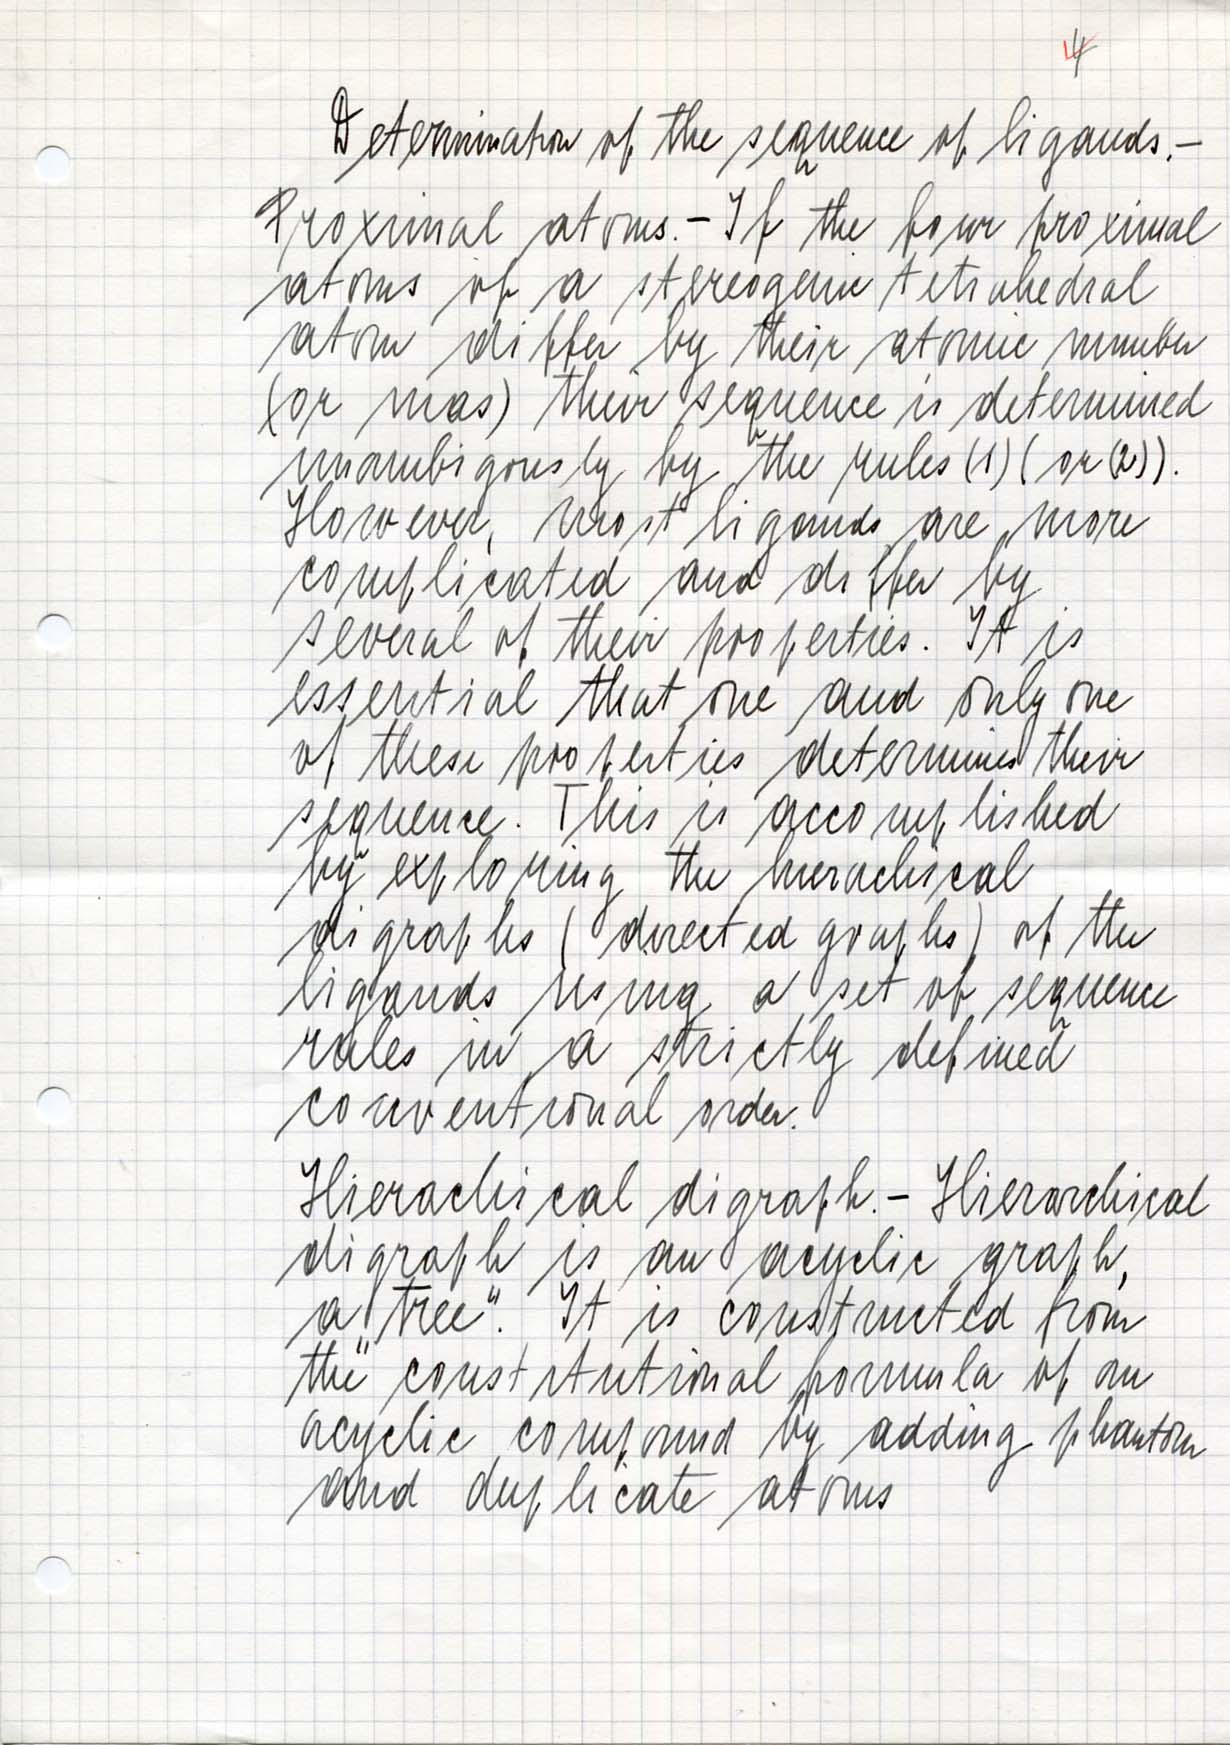 4
Determination of the sequence of ligands.–
Proximal atoms.– If the four proximal
atoms of a stereogenic tetrahedral
atom differ by their atomic number
(or mas) their sequence is determined
unambigously by the rules (1) (or (2)).
However, most ligands are more
complicated and differ by
several of their properties. It is
essential that one and only one
of these properties determines their
sequence. This is accomplished
by exploring the hierachical
digraphs (directed graphs) of the
ligands using a set of sequence
rules in a strictly defined
conventional order.
Hierachical digraph.– Hierarchical
digraph is an acyclic graph,
a "tree". It is constructed from
the constitutional formula of an
acyclic compound by adding phantom
and duplicate atoms